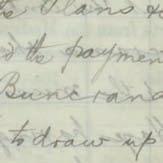 the Plans
the payment
Buncrana
to draw up